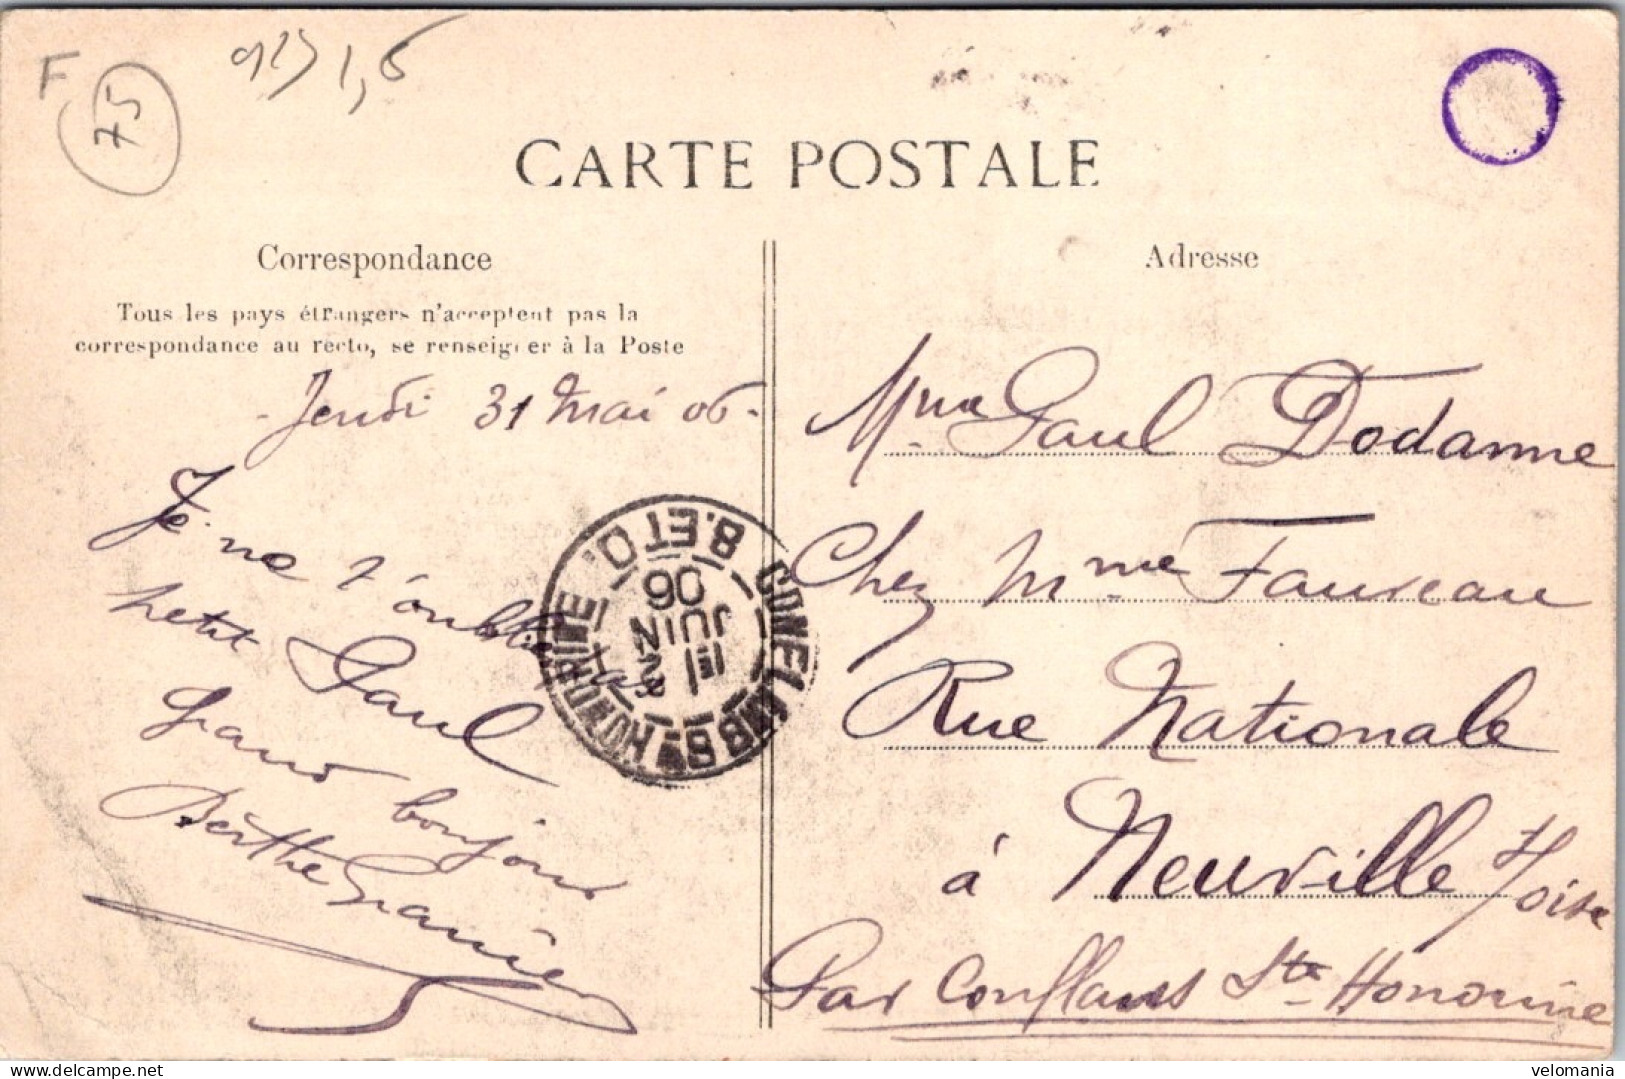 F
75
1,6
CARTE POSTALE
Correspondance
Tous les pays étrangers n'acceptent pas la
correspondance au recto, se renseigner à la Poste
- Jeudi 31 Mai 06 -
Je ne t'oublie pas
petit Paul
Grand bonjour
Berthe Granier
8. ET O.
06
JUIN
HONORINE
Adresse
Mme Paul Dodanne
Chez Mme Fauveau
Rue Nationale
à Neuville s/oise
Par Conflans Ste Honorine
velomania